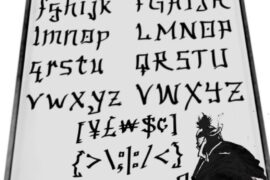 fghijk FGHIJK
lmnop LMNOP
qrstu QRSTU
vwxyz VWXYZ
[¥£₩$¢]
{>\;|:/<}